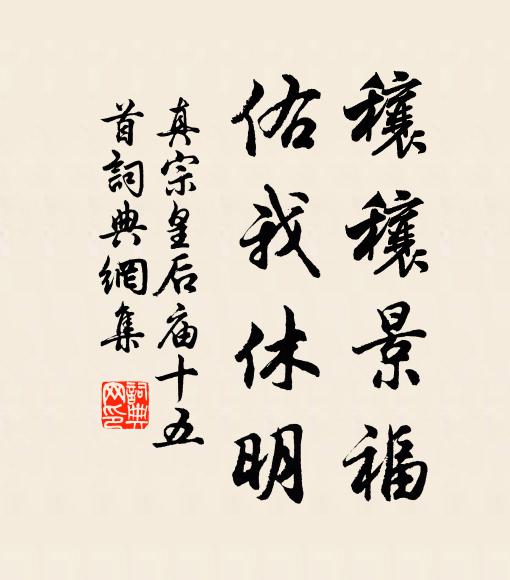 穰穰景福
佑我休明
真宗皇后庙十五
首詞典網集
詞典
网印